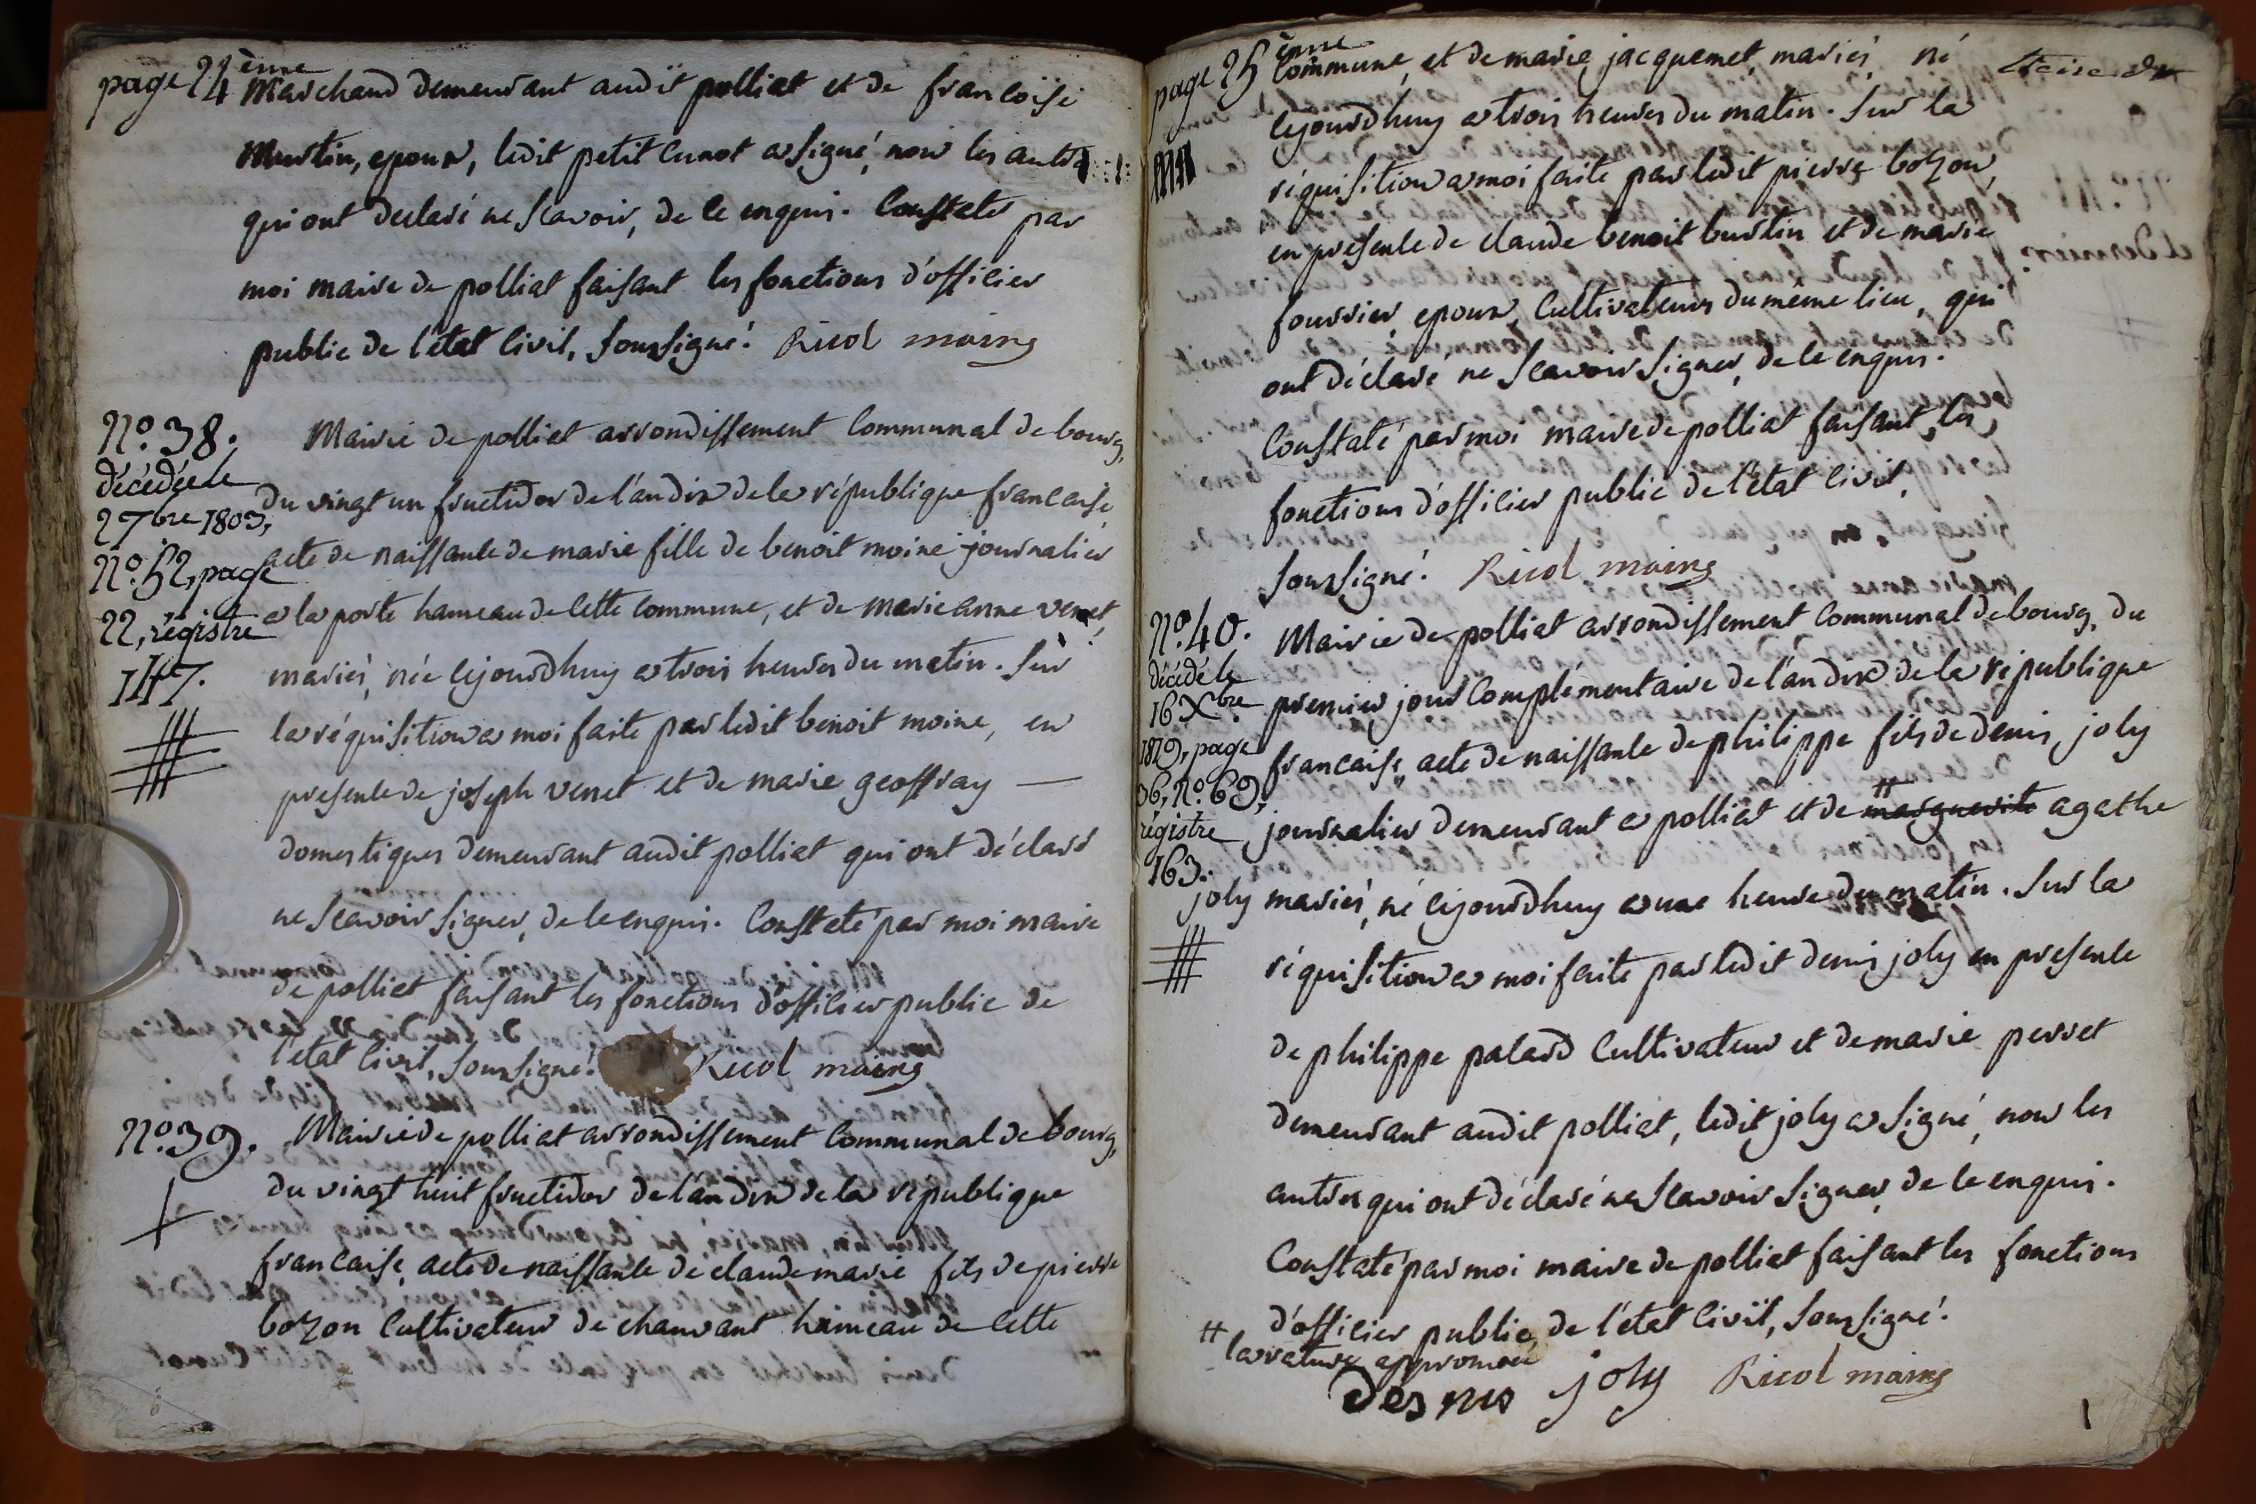 page 24ème
Marchand demeurant audit polliat et de francoise
Murtin, epoux, ledit petit Cunot a signé, non les autres
qui ont declaré ne scavoir, de ce enquis. Constaté par
moi maire de polliat faisant les fonctions d'officier
public de l'état Civil, soussigné. Ricol maire
N.o 38.
décédée le
2 7bre 1803,
N.o 52, page
22, régistre
147.
Mairie de polliat arrondissement Communal de bourg,
du vingt un fructidor de l'an dix de la république francaise,
acte de naissance de marie fille de benoit moine journalier
a la porte hameau de Cette Commune, et de marie anne venet,
mariés, née Cejourdhuy a trois heures du matin. Sur
la réquisition a moi faite par ledit benoit moine, en
presence de joseph venet et de marie geoffray —
domestiques demeurant audit polliat qui ont déclaré
ne scavoir signer, de ce enquis. Constaté par moi maire
de polliat faisant les fonctions d'officier public de
l'état Civil, soussigné. Ricol maire
N.o 39.
Mairie de polliat arrondissement Communal de bourg,
du vingt huit fructidor de l'an dix de la république
francaise, acte de naissance de claude marie fils de pierre
bozon Cultivateur de chanvant hameau de Cette
page 25ème
Commune, et de marie jacquemet, mariés, né
Cejourdhuy a trois heures du matin. Sur la
réquisition a moi faite par ledit pierre bozon,
en presence de claude benoit burtin et de marie
fourrier, epoux, Cultivateurs du même lieu, qui
ont déclaré ne scavoir signer, de ce enquis.
Constaté par moi maire de polliat faisant les
fonctions d'officier public de l'état Civil,
soussigné. Ricol maire
N.o 40.
décédé le
16 Xbre
1819, page
36, N.o 69,
régistre
163.
Mairie de polliat arrondissement Communal de bourg, du
premier jour Complémentaire de l'an dix de la république
francaise, acte de naissance de philippe fils de denis joly
journalier demeurant a polliat et de marguerite agathe
joly mariés, né Cejourdhuy a une heure du matin. Sur la
réquisition a moi faite par ledit denis joly en presence
de philippe palard Cultivateur et de marie perret
demeurant audit polliat, ledit joly a signé, non les
autres qui ont déclaré ne scavoir signer, de ce enquis.
Constaté par moi maire de polliat faisant les fonctions
d'officier public de l'état Civil, soussigné.
la rature approuvée
joly Ricol maire